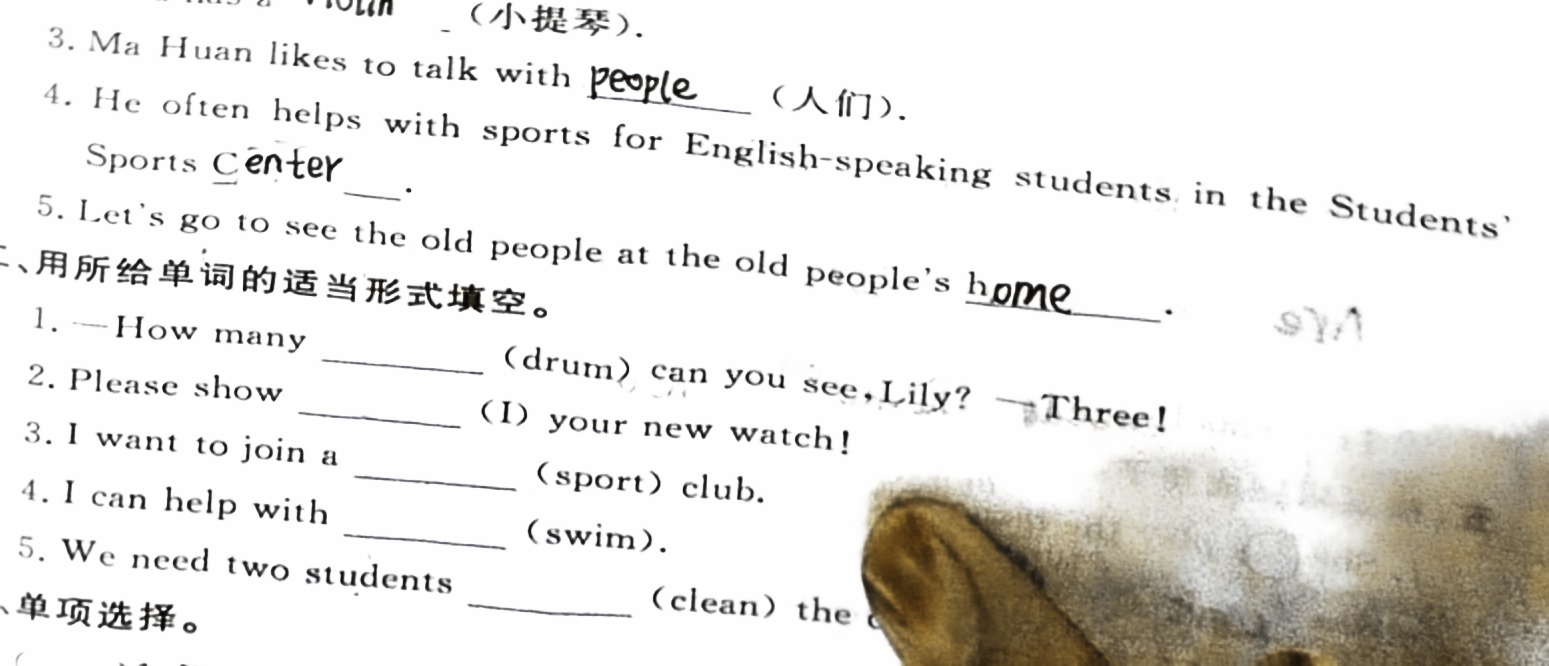 violin （小提琴）.
3. Ma Huan likes to talk with people （人们）.
4. He often helps with sports for English-speaking students in the Students'
Sports Center ___.
5. Let's go to see the old people at the old people's home ___.
、用所给单词的适当形式填空。
1. —How many ________ （drum） can you see, Lily? —Three!
2. Please show ________ （I） your new watch!
3. I want to join a ________ （sport） club.
4. I can help with ________ （swim）.
5. We need two students ________ （clean） the
、单项选择。